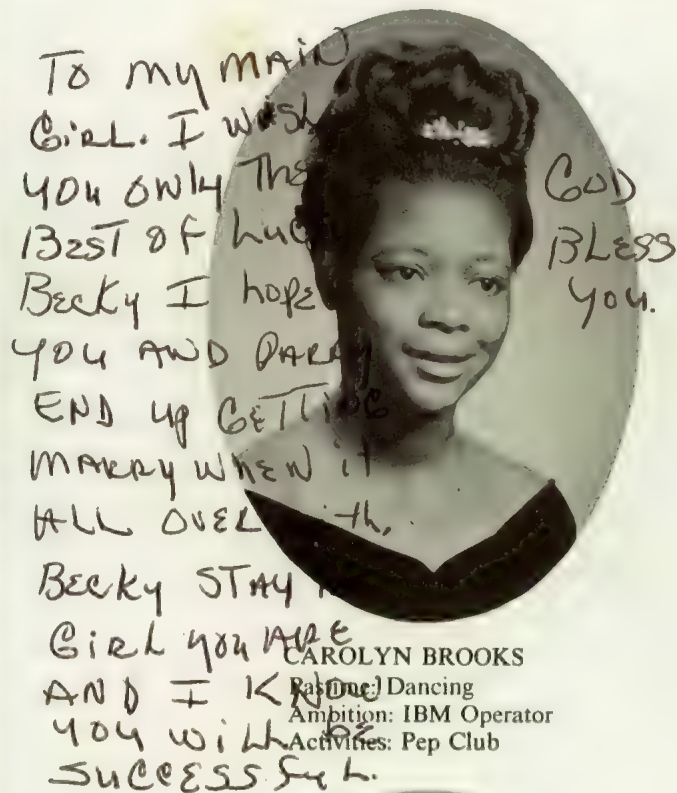 TO MY MAIN
GIRL. I WISH
YOU ONLY THE
BEST OF LUCK
BECKY I hope
YOU AND
END UP GETTING
MARRY WHEN it
ALL OVER
BECKY STAY
GIRL YOU ARE
AND I KNOW
YOU WILL BE
SUCCESSFUL.
GOD
BLESS
YOU.
CAROLYN BROOKS
Pastime: Dancing
Ambition: IBM Operator
Activities: Pep Club